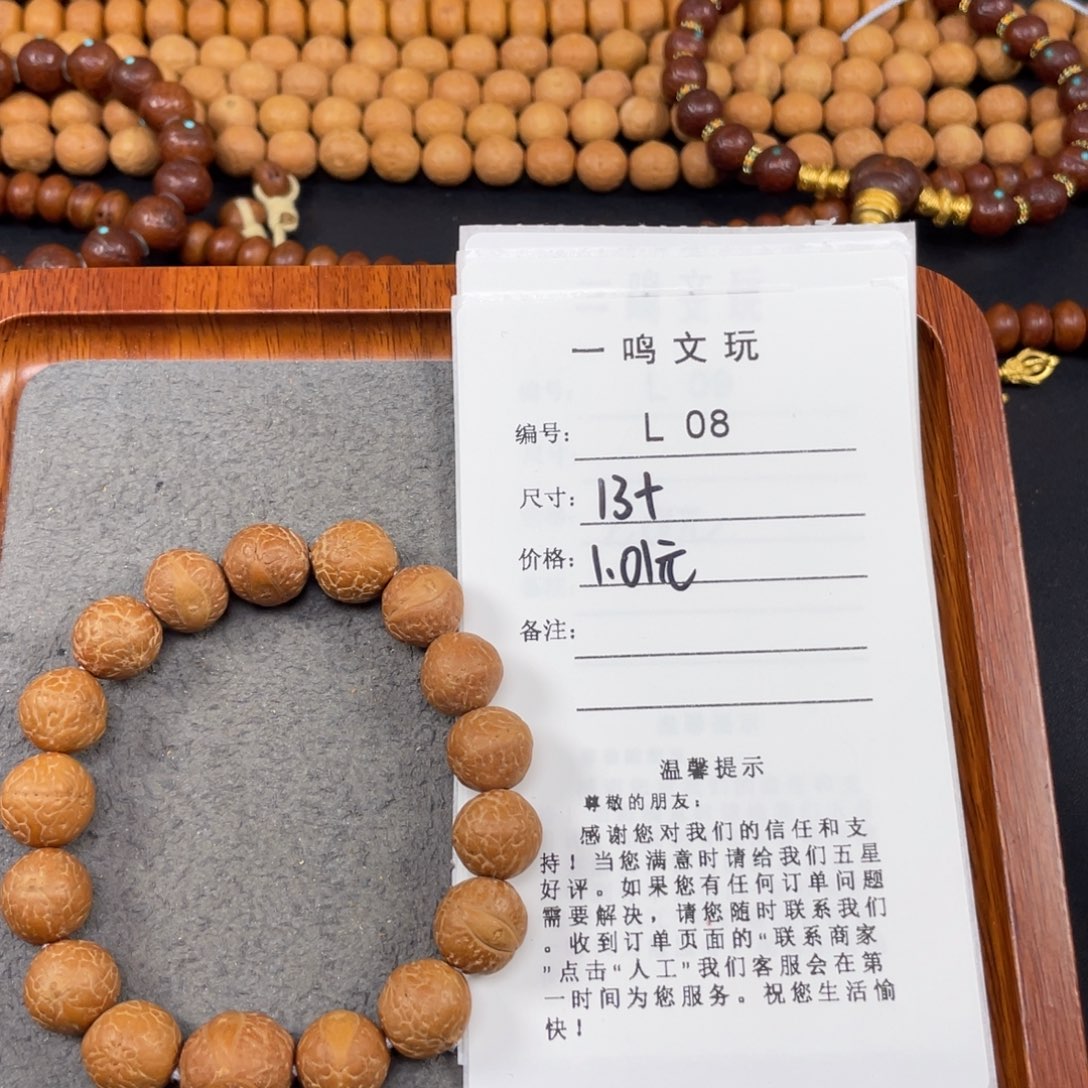 一鸣文玩
编号： L 08
尺寸： 13+
价格： 1.01元
备注：
温馨提示
尊敬的朋友：
感谢您对我们的信任和支
持！当您满意时请给我们五星
好评。如果您有任何订单问题
需要解决，请您随时联系我们
。收到订单页面的“联系商家
”点击“人工”我们客服会在第
一时间为您服务。祝您生活愉
快！